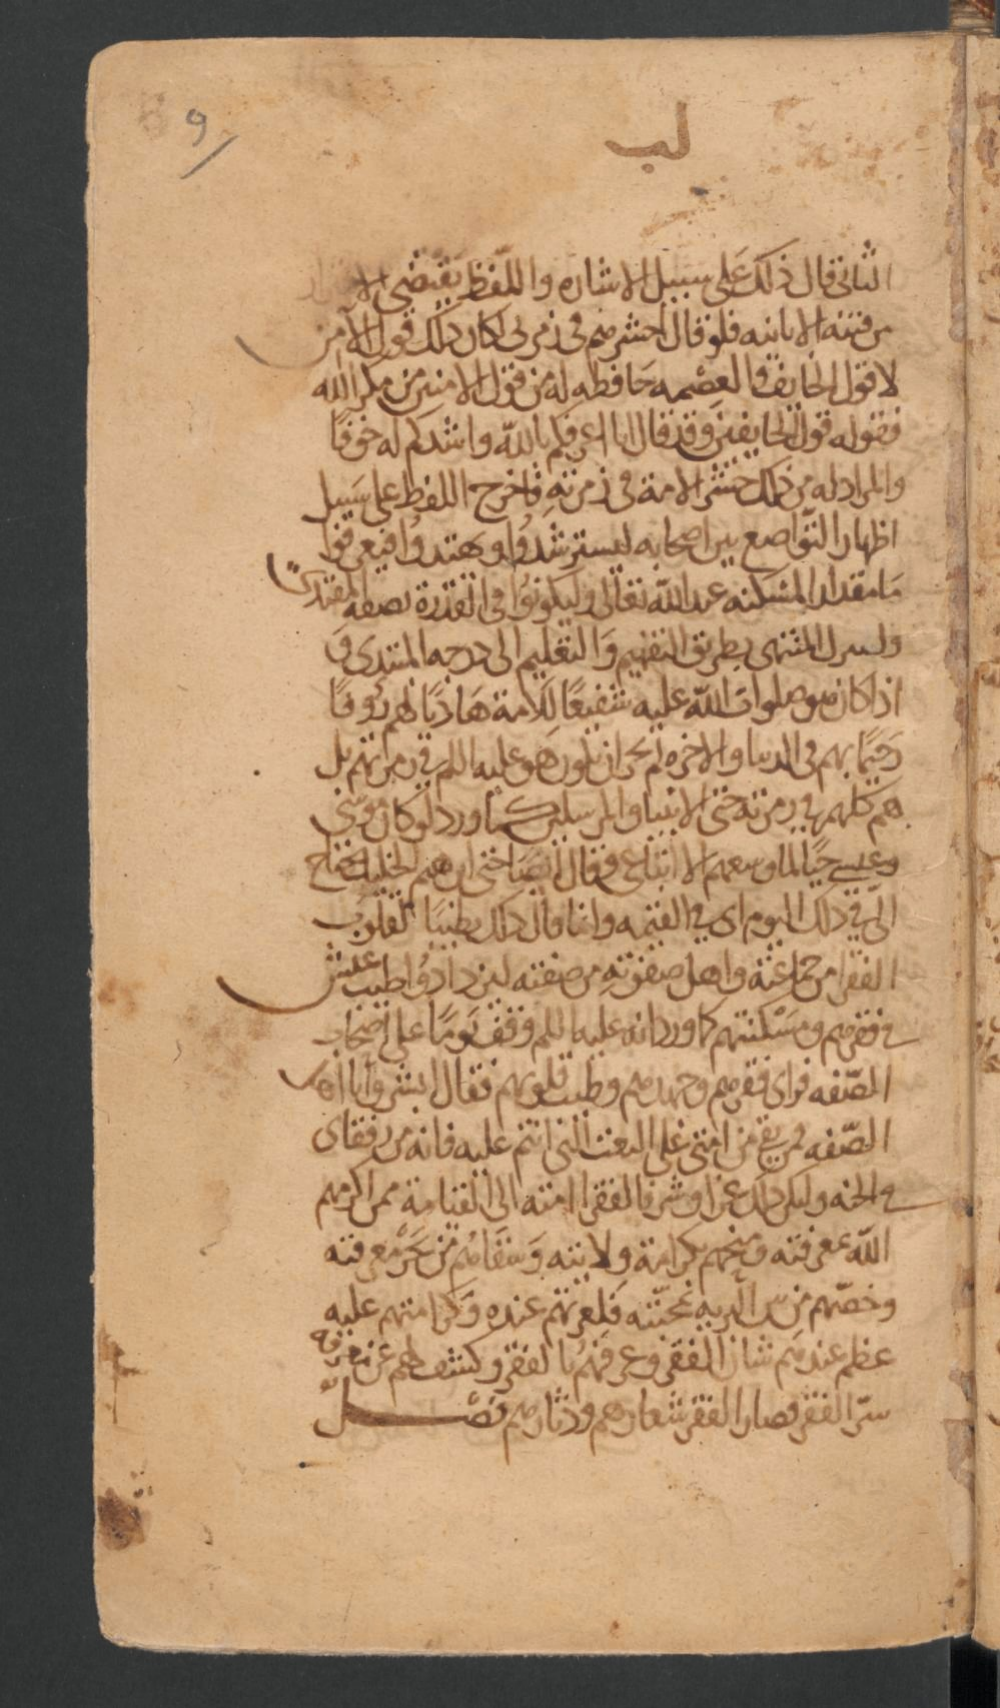 9
لب
الثاني قال ذلك على سبيل الاشاره واللفظ يقتضي
من فتنه الاباننه فلو قال احشرهم في زمرتي لكان ذلك قول الآمن
لا قول الخايف والعصمه حافظه له من قول الامنين من مكر الله
فقوله قول الخايفين وقد قال انا اعرفكم بالله واشدكم له خوفًا
والمراد له من ذلك حشر الامة في زمرتهِ فاخرج اللفظ على سبيل
اظهار التواضع بين اصحابه ليسترشدُوا ويهتدوُا فيعرفوا
مَا مقدار المسكنه عند الله تعالى وليكونوُا في القدرة بصفه المقتدى
ولينزل المنتهى بطريق التفهيم وَالتعليم الى درجه المبتدى وَ
اذا كان هو صلوات الله عليه شفيعًا للامة هَاديًا لهم رؤوفًا
رَحيمًا بهم في الدنيا والاخره لم يجز ان يكون هو عليه السلم في زمرتهم بل
هم كلهم في زمرته حتى الانبيا والمرسلين كما ورد لو كان موسى
وعيسى حيًا لما وسعهم الا اتباعي وقال ايضًا حتى ابرهيم الخليل يحتاج
اليّ في ذلك اليوم اى في القيمه وانما قال ذلك تطييبًا لقلوُب
الفقرا من جماعته واهل صفوتهِ من صفته ليزدادوُا طيب عيش
في فقرهم ومسْكنتهم كما ورد انه عليه السلم وقف يَومًا على اصحاب
الصّفه فراى فقرهم وجهدهم وطيب قلوبهم فقال ابشروا يا اهل
الصّفه فمن بقي من امتي على النعت الذي انتم عليه فانه من رفقاى
في الجنه وليكن ذلك عزا وشرفا لفقرا امته الى القيامة ممن اكرمهم
الله بمعرفته ومنحهم بكرامة ولايته وَسقاهُم من بَحر معرفته
وخصّهم من بين البريه بمحبّته فلعزتهم عنده وَكرامتهم عليه
عظم عندهم شان الفقر وعرفهُم بالفقر وكشف لهم عن معرفة
سرّ الفقر فصار الفقر شعارهم ودثارهم فصْـــل